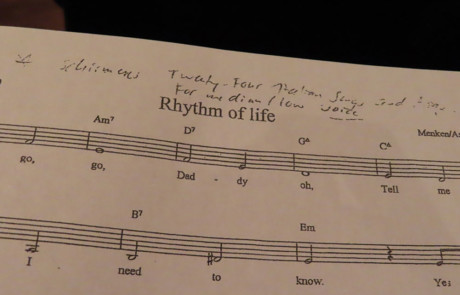 Twenty-Four Italian Songs and
For medium / low voice
Rhythm of life
Menken/
Am7 D7 G∆ C∆
go, go, Dad - dy oh, Tell me
B7 Em
I need to know. Yes